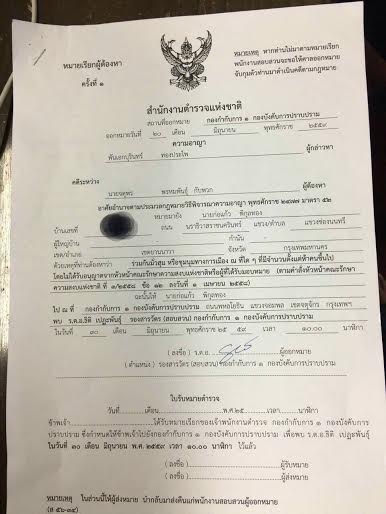 หมายเรียกผู้ต้องหา
ครั้งที่ ๑
หมายเหตุ หากท่านไม่มาตามหมายเรียก
พนักงานสอบสวนจะขอให้ศาลออกหมาย
จับกุมตัวท่านมาดำเนินคดีตามกฎหมาย
สำนักงานตำรวจแห่งชาติ
สถานที่ออกหมาย กองกำกับการ ๑ กองบังคับการปราบปราม
ออกหมายวันที่ ๒๐ เดือน มิถุนายน พุทธศักราช ๒๕๕๙
ความอาญา
พันเอกบุรินทร์ ทองประไพ ผู้กล่าวหา
คดีระหว่าง
นายจตุพร พรหมพันธุ์ กับพวก ผู้ต้องหา
อาศัยอำนาจตามประมวลกฎหมายวิธีพิจารณาความอาญา พุทธศักราช ๒๔๗๗ มาตรา ๕๒
หมายมายัง นายก่อแก้ว พิกุลทอง
บ้านเลขที่ ถนน นราธิวาสราชนครินทร์ แขวง/ตำบล แขวงช่องนนทรี
ผู้ใหญ่บ้าน กำนัน
เขต/อำเภอ เขตยานนาวา จังหวัด กรุงเทพมหานคร
ด้วยเหตุที่ท่านต้องหาว่า ร่วมกันมั่วสุม หรือชุมนุมทางการเมือง ณ ที่ใด ๆ ที่มีจำนวนตั้งแต่ห้าคนขึ้นไป
โดยไม่ได้รับอนุญาตจากหัวหน้าคณะรักษาความสงบแห่งชาติหรือผู้ที่ได้รับมอบหมาย (ตามคำสั่งหัวหน้าคณะรักษา
ความสงบแห่งชาติ ที่ ๓/๒๕๕๘ ข้อ ๑๒ ลงวันที่ ๑ เมษายน ๒๕๕๘)
ฉะนั้นให้ นายก่อแก้ว พิกุลทอง
ไป ณ ที่ กองกำกับการ ๑ กองบังคับการปราบปราม ถนนพหลโยธิน แขวงจอมพล เขตจตุจักร กรุงเทพฯ
พบ ร.ต.อ.ธิติ เปฏะพันธุ์ รองสารวัตร (สอบสวน) กองกำกับการ ๑ กองบังคับการปราบปราม
ในวันที่ ๓๐ เดือน มิถุนายน พุทธศักราช ๒๕ ๕๙ เวลา ๑๐.๐๐ นาฬิกา
(ลงชื่อ) ร.ต.อ. ผู้ออกหมาย
(ตำแหน่ง) รองสารวัตร (สอบสวน) กองกำกับการ ๑ กองบังคับการปราบปราม
ใบรับหมายตำรวจ
วันที่ เดือน พ.ศ.๒๕ เวลา นาฬิกา
ข้าพเจ้า ได้รับหมายเรียกของเจ้าพนักงานตำรวจ กองกำกับการ ๑ กองบังคับการ
ปราบปราม ซึ่งกำหนดให้ข้าพเจ้าไปยังกองกำกับการ ๑ กองบังคับการปราบปราม เพื่อพบ ร.ต.อ.ธิติ เปฏะพันธุ์
ในวันที่ ๓๐ เดือน มิถุนายน พ.ศ. ๒๕๕๙ เวลา ๑๐.๐๐ นาฬิกา ไว้แล้ว
(ลงชื่อ) ผู้รับหมาย
(ลงชื่อ) ผู้ส่งหมาย
หมายเหตุ ในส่วนนี้ให้ผู้ส่งหมาย นำกลับมาส่งคืนแก่พนักงานสอบสวนผู้ออกหมาย
(ส ๕๖-๓๔)